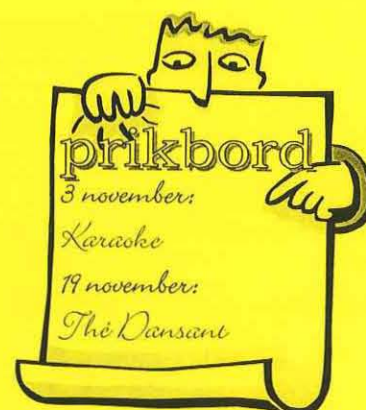 prikbord
3 november:
Karaoke
19 november:
Thé Dansant